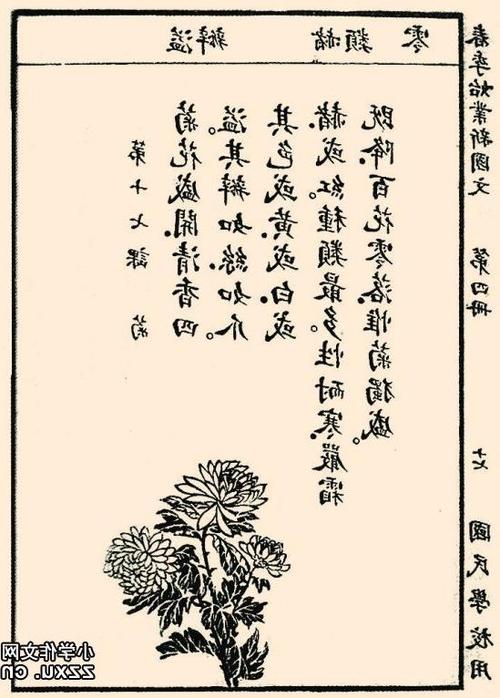 溢瓣 赭類 零
第十七課 菊
菊花盛開．清香四
溢。其瓣如絲如爪。
其色或黃．或白．或
赭．或紅．種類最多。性耐寒．嚴霜
既降．百花零落．惟菊獨盛。
春季始業新國文 第四冊 十七 國民學校用
小学作文网
zzxu.cn